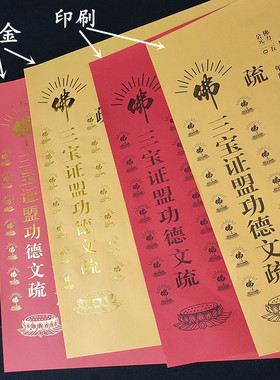 金
印刷
佛
三宝证盟功德文疏
佛
三宝证盟功德文疏
疏
佛
三宝证盟功德文疏
佛
三宝证盟功德文疏
疏